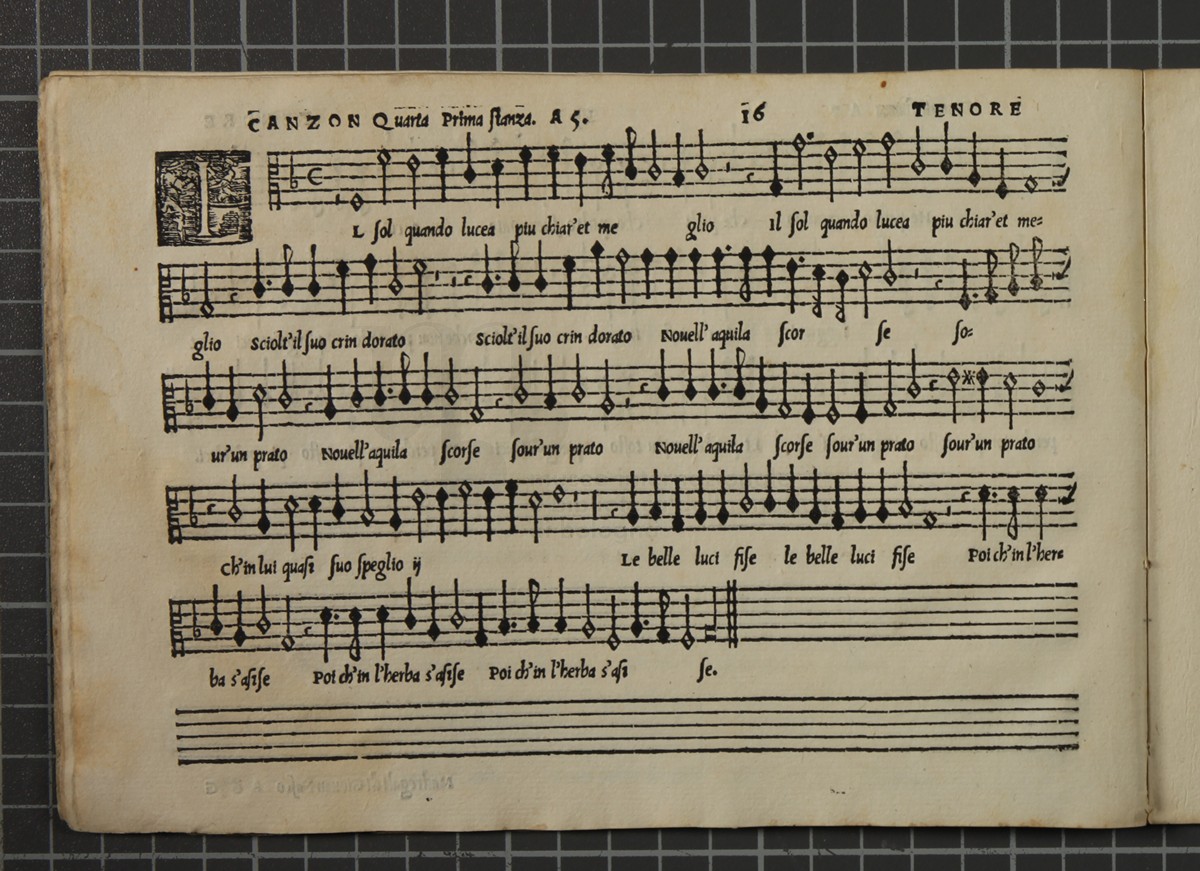 CANZON Quarta Prima stanza. A 5. 16 TENORE
IL sol quando lucea piu chiar'et me glio Il sol quando lucea piu chiar'et me=
glio Sciolt'il suo crin dorato Sciolt'il suo crin dorato Nouell' aquila scor se so=
ur'un prato Nouell'aquila scorse sour'un prato Nouell'aquila scorse sour'un prato sour'un prato
Ch'in lui quasi suo speglio ij Le belle luci fise le belle luci fise Poi ch'in l'her=
ba s'asise Poi ch'in l'herba s'asise Poi ch'in l'herba s'asi se.